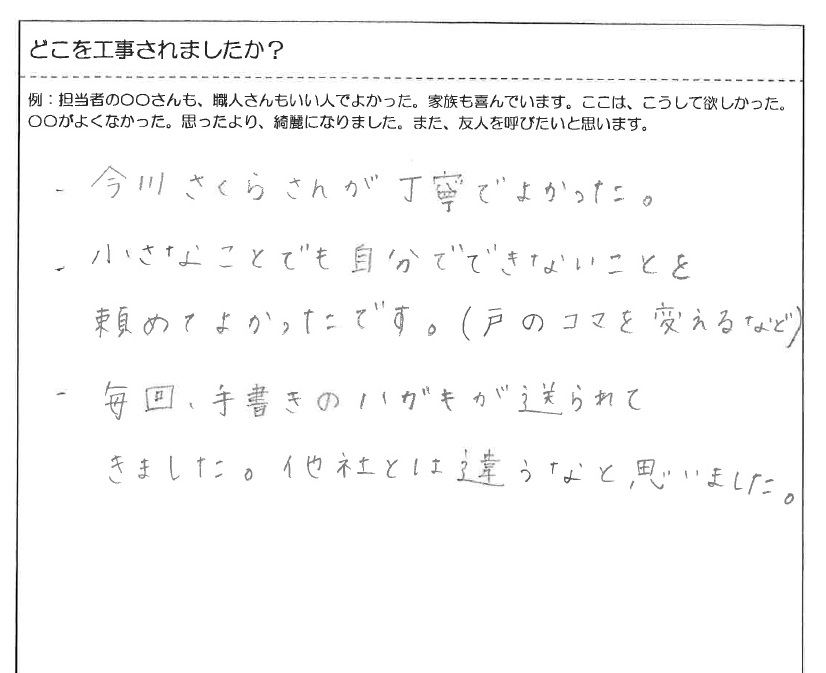 どこを工事されましたか？
例：担当者の〇〇さんも、職人さんもいい人でよかった。家族も喜んでいます。ここは、こうして欲しかった。
〇〇がよくなかった。思ったより、綺麗になりました。また、友人を呼びたいと思います。
- 今川さくらさんが丁寧でよかった。
- 小さなことでも自分でできないことを
頼めてよかったです。(戸のコマを変えるなど)
- 毎回、手書きのハガキが送られて
きました。他社とは違うなと思いました。